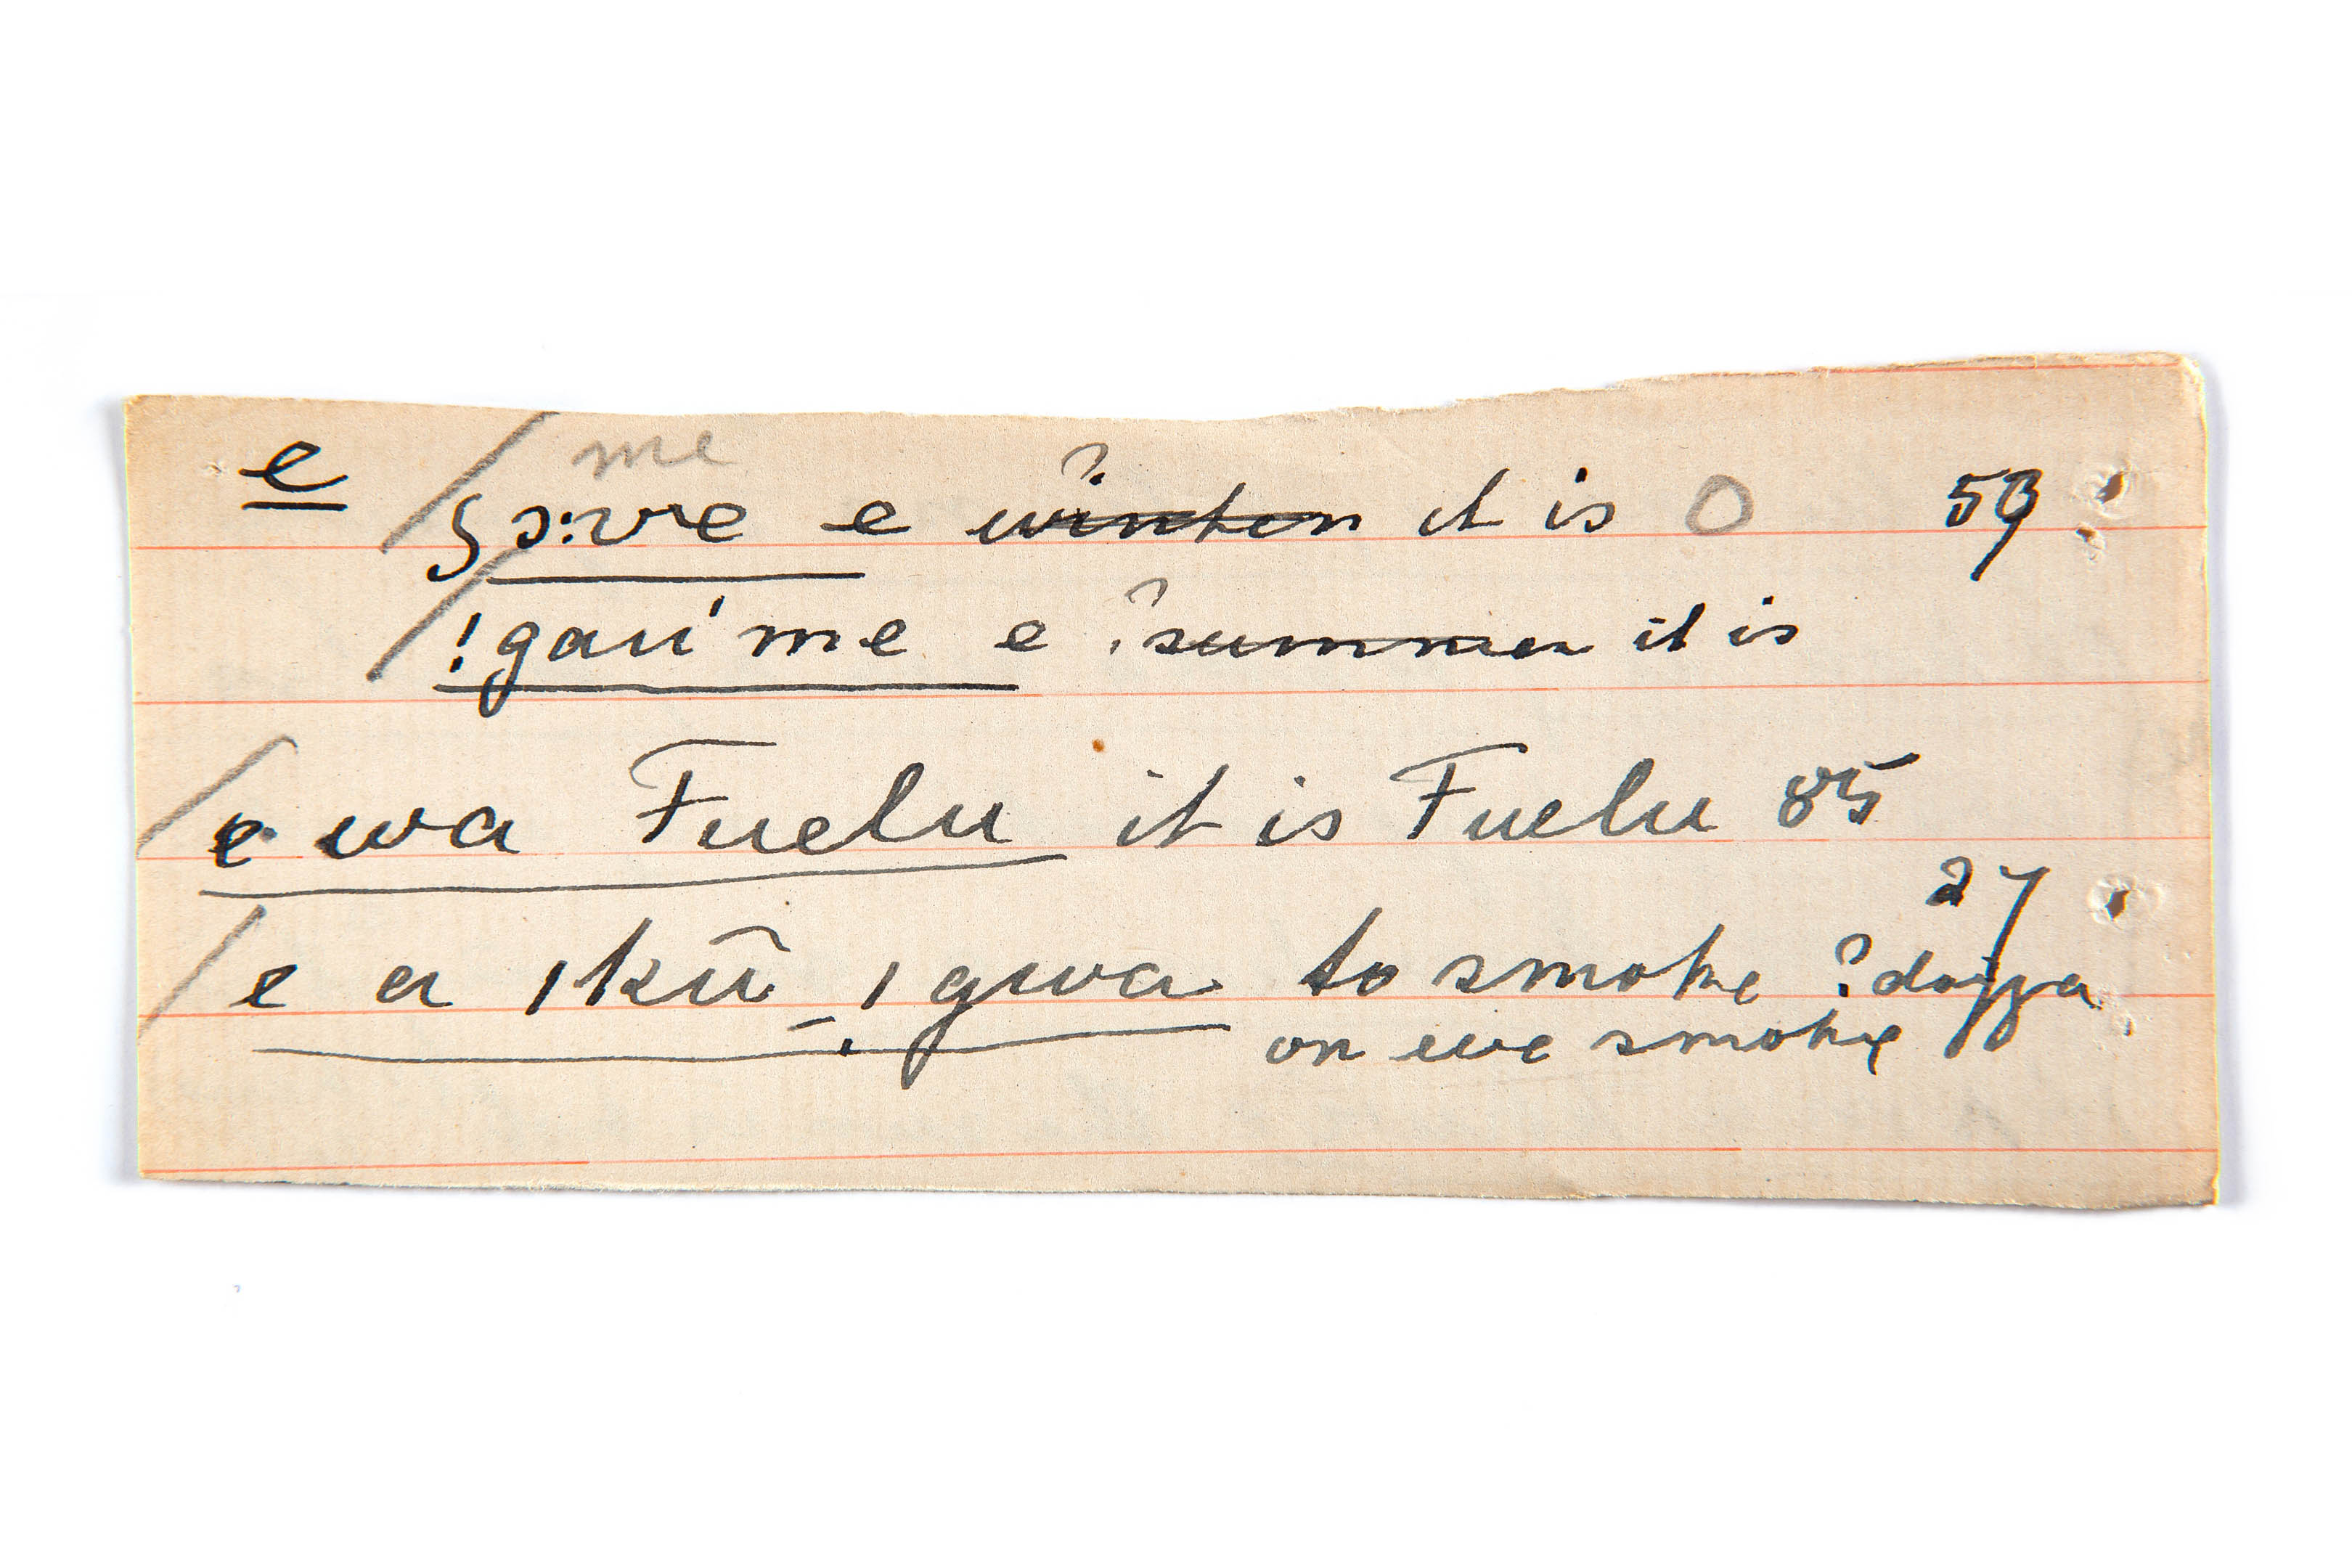 me
e ʃɔ:ve e ? winter it is O 59
!gau'me e ? summer it is
e wa Fuelu it is Fuelu 85
27
e a ǀkū ǀgwa to smoke ? dagga
or we smoke